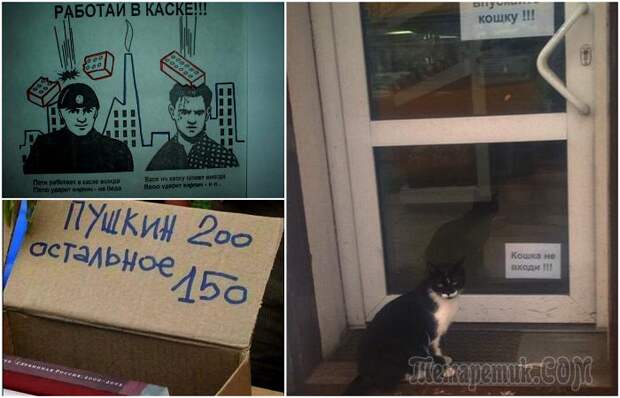 РАБОТАЙ В КАСКЕ!!!
Петя работает в каске всегда
Петю ударит кирпич - не беда
Вася их каску
Васю ударит кирпич - и п...
ПУШКИН 200
остальное 150
СТРАННАЯ РОССИЯ: 2000-2012
впускайте
кошку !!!
Кошка не
входи !!!
Тетаретик.COM